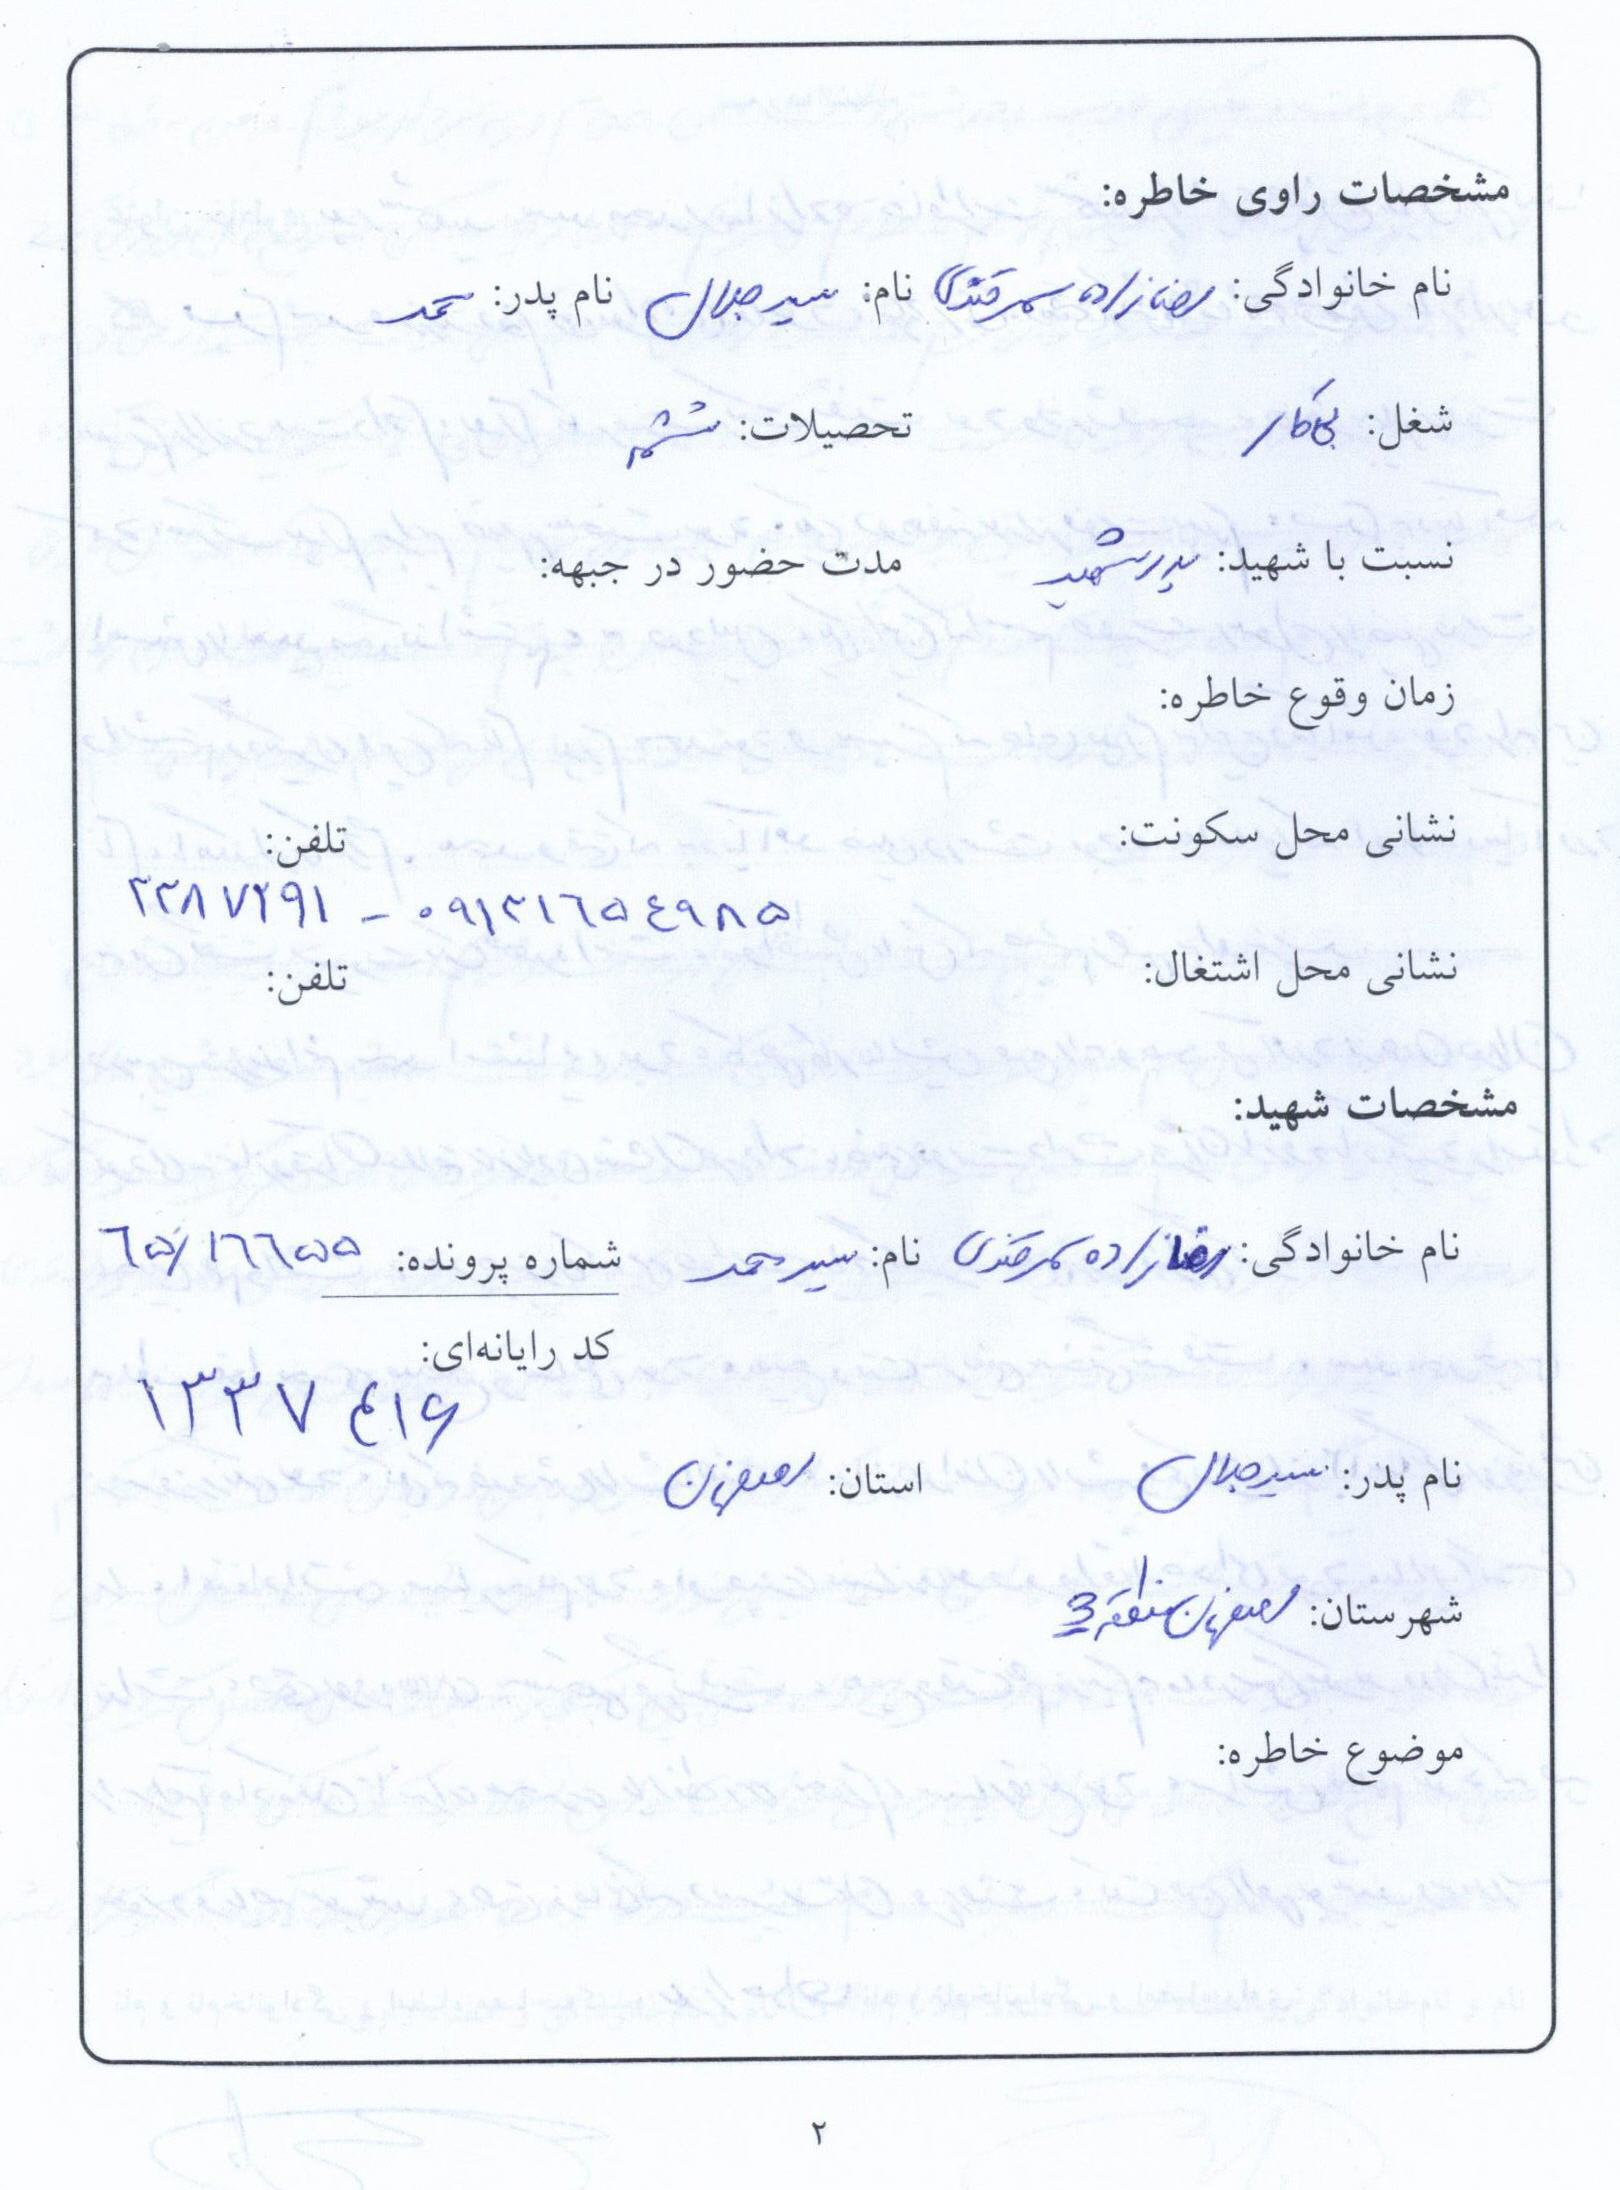 مشخصات راوی خاطره:
نام خانوادگی: رضازاده سمرقندی نام: سید جلال نام پدر: محمد
شغل: بی‌کار تحصیلات: ششم
نسبت با شهید: پدر شهید مدت حضور در جبهه:
زمان وقوع خاطره:
نشانی محل سکونت: تلفن:
۲۲۸۷۲۹۱ - ۰۹۱۳۱۶۵۴۹۸۵
نشانی محل اشتغال: تلفن:
مشخصات شهید:
نام خانوادگی: رضازاده سمرقندی نام: سید محمد شماره پرونده: ۶۵/۱۶۶۵۵
کد رایانه‌ای:
۱۳۳۷۴۱۶
نام پدر: سید جلال استان: اصفهان
شهرستان: اصفهان منطقه 3
موضوع خاطره:
۲